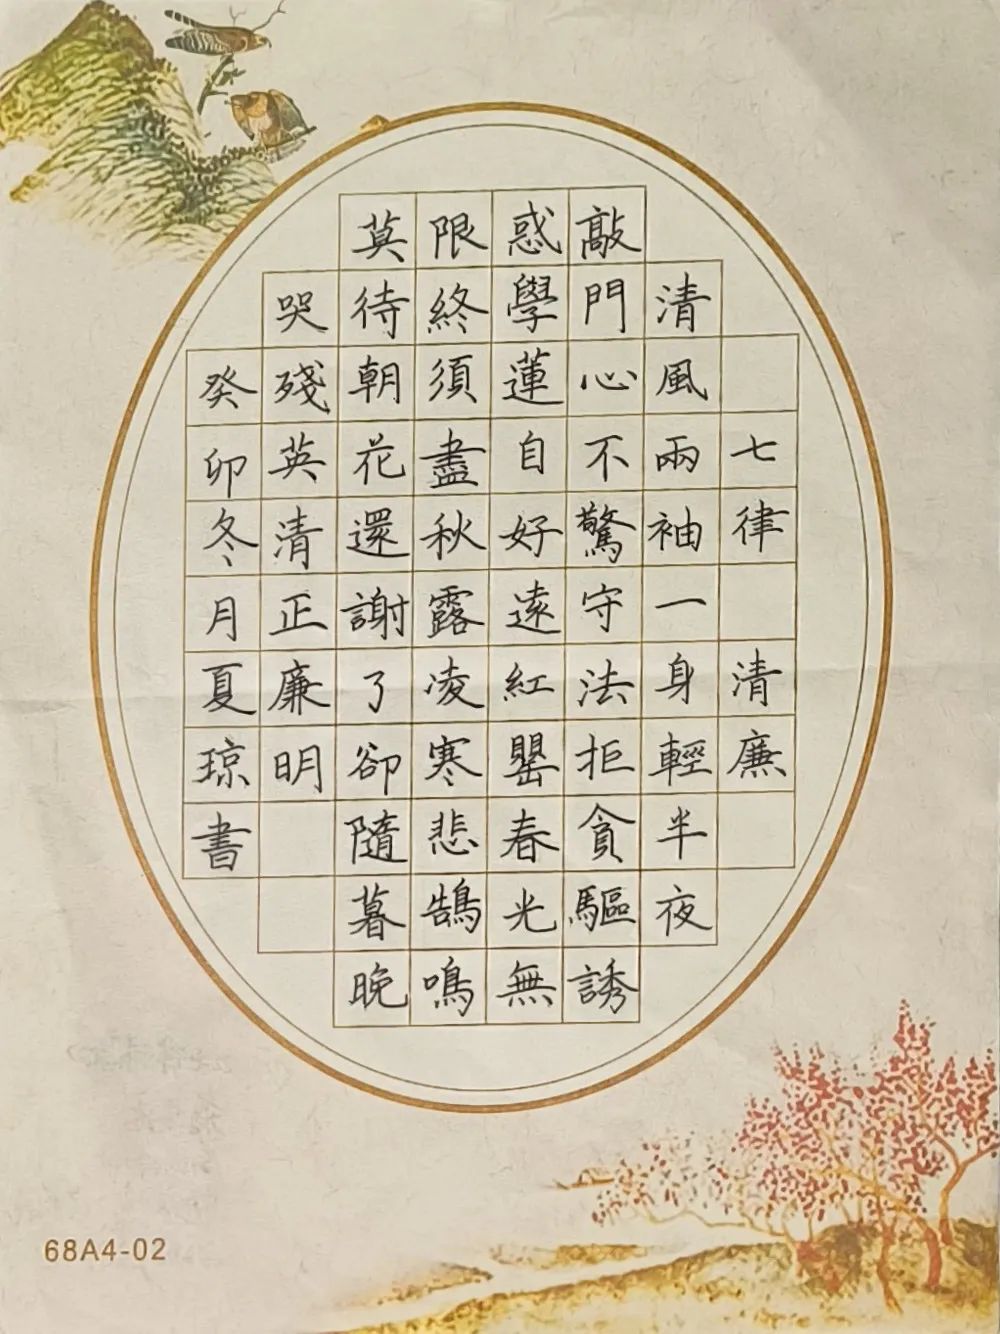 七律 清廉
清風兩袖一身輕半夜
敲門心不驚守法拒貪驅誘
惑學蓮自好遠紅罌春光無
限終須盡秋露凌寒悲鵠鳴
莫待朝花還謝了卻隨暮晚
哭殘英清正廉明
癸卯冬月夏琼書
68A4-02